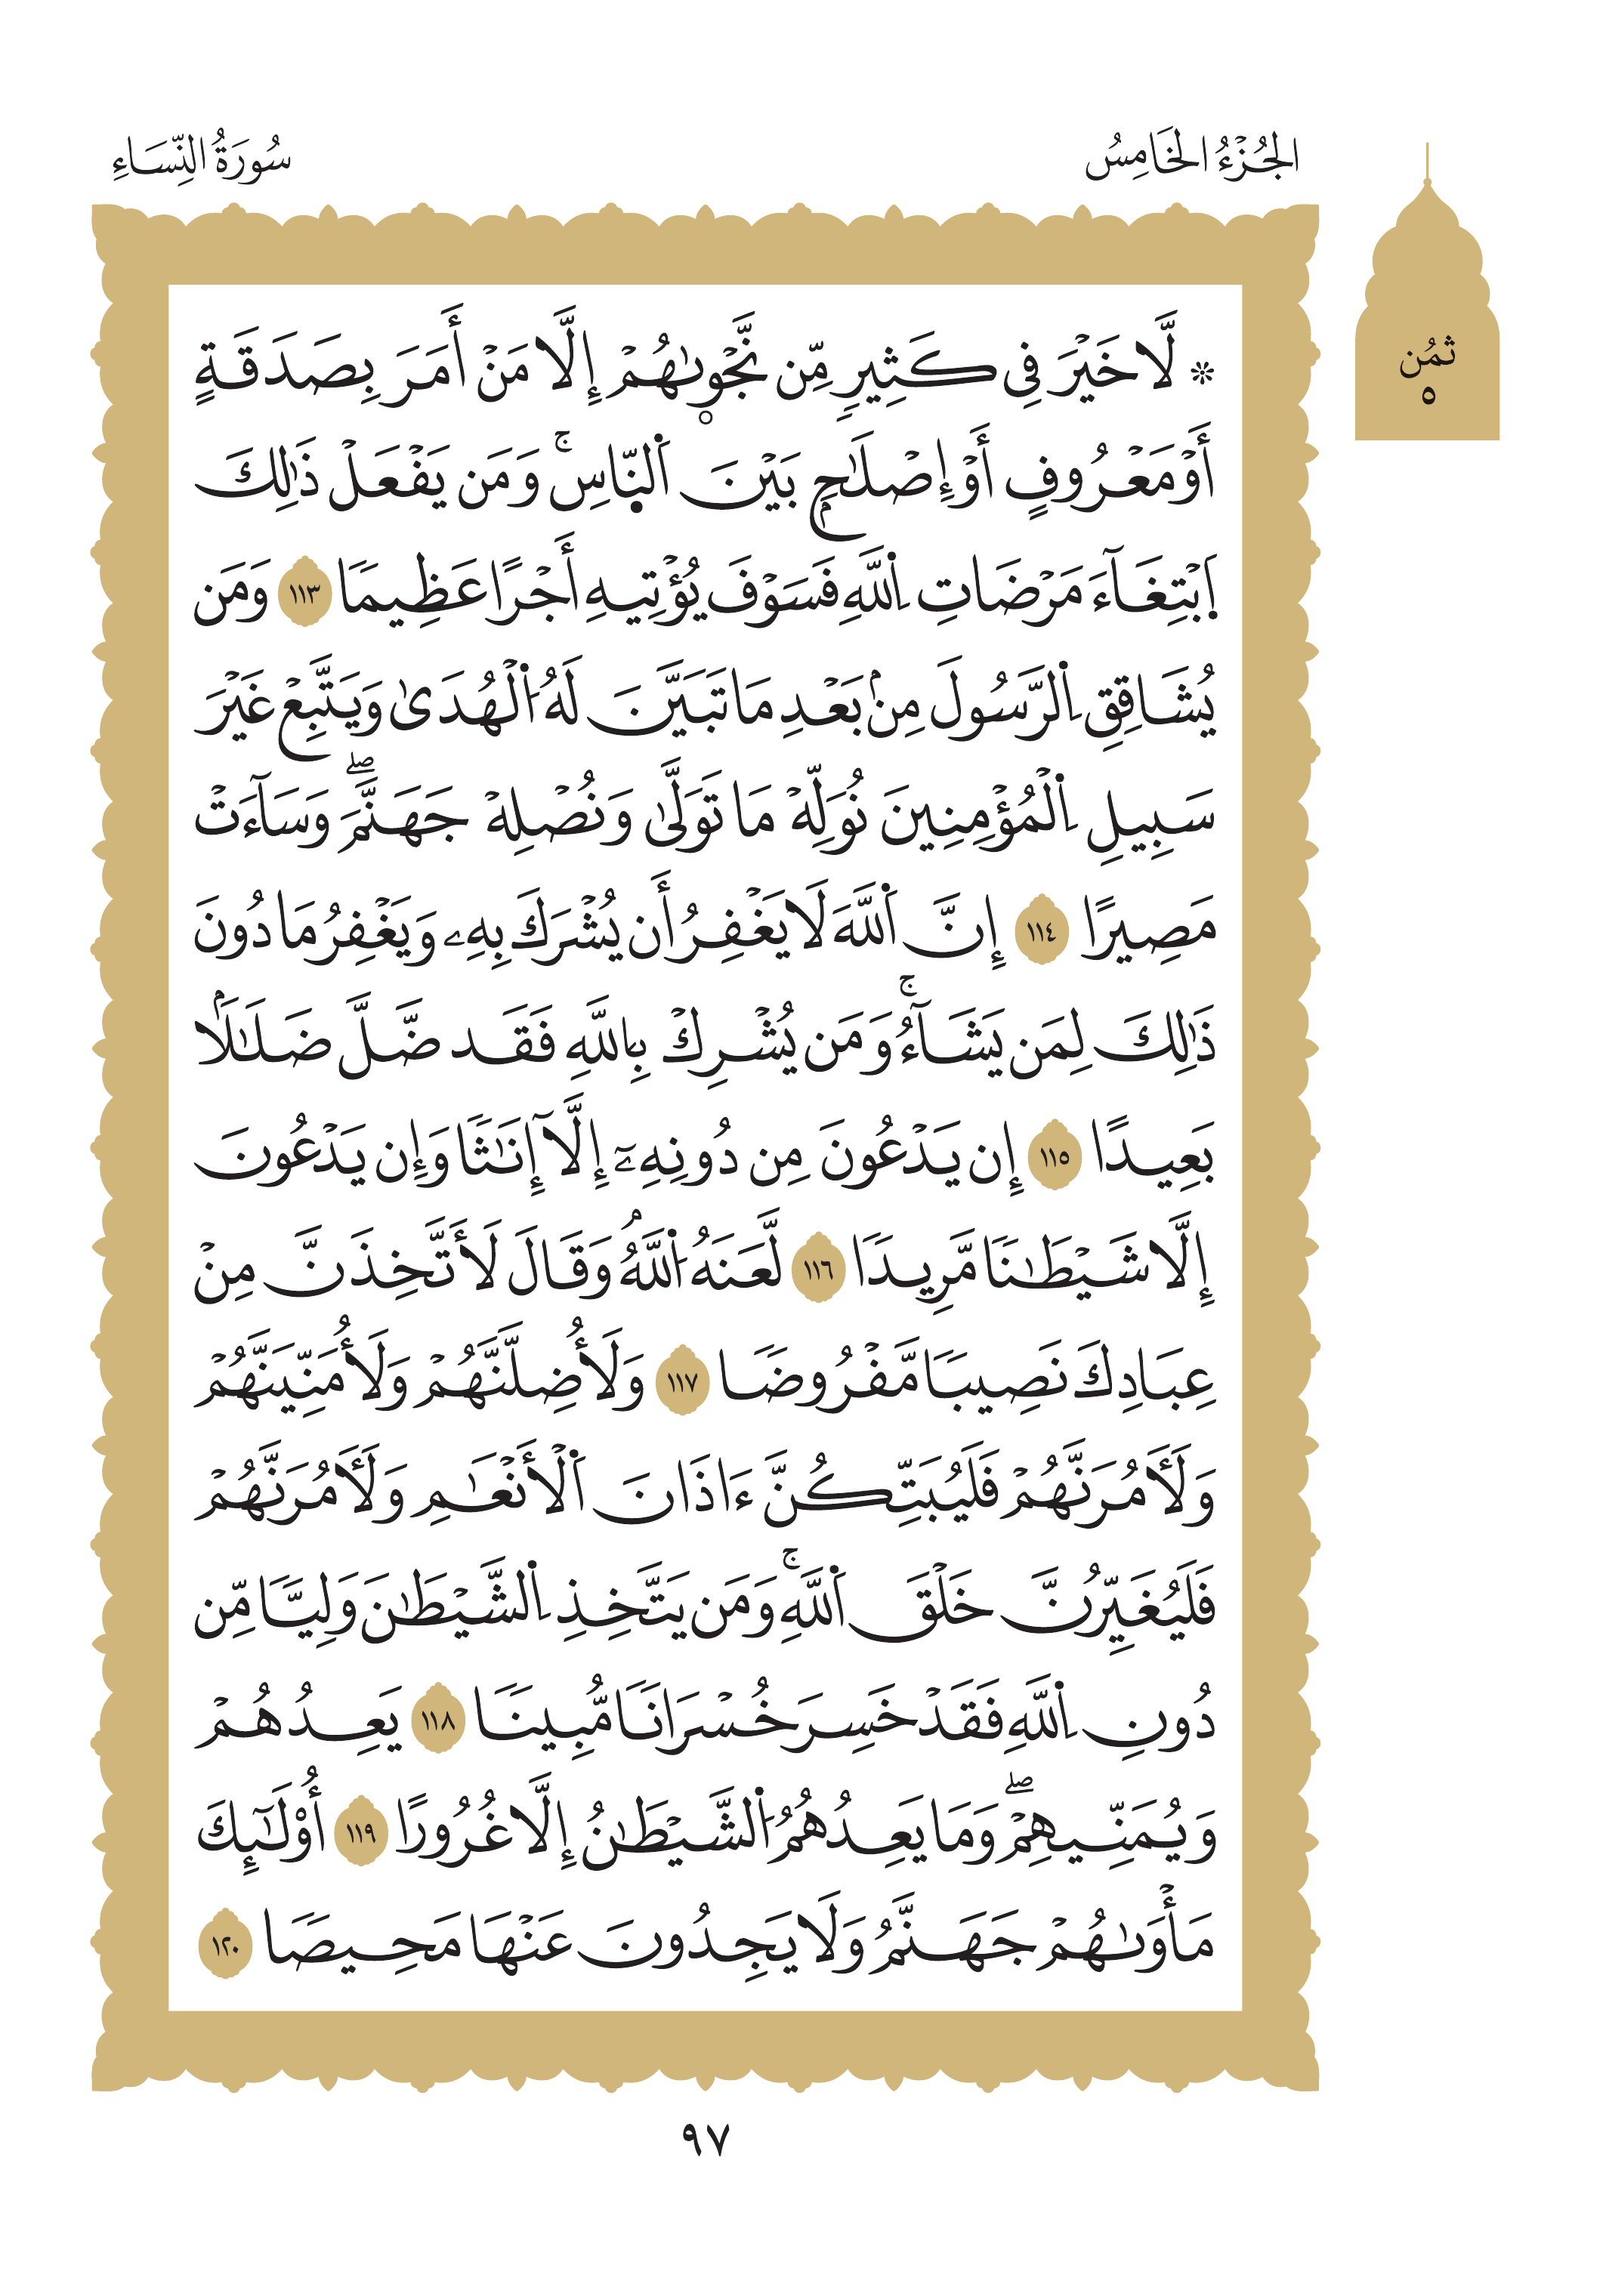 الجُزْءُ الخَامِسُ
سُورَةُ النِّسَاءِ
ثُمُن
٥
۞ لَّا خَيْرَ فِي كَثِيرٖ مِّن نَّجْوٜىٰهُمْ إِلَّا مَنْ أَمَرَ بِصَدَقَةٍ
أَوْ مَعْرُوفٍ أَوْ إِصْلَٰحِۭ بَيْنَ اَ۬لنّٜاسِۚ وَمَن يَفْعَلْ ذَٰلِكَ
اَ۪بْتِغَآءَ مَرْضَاتِ اِ۬للَّهِ فَسَوْفَ يُؤْتِيهِ أَجْرًا عَظِيمٗا ١١٣ وَمَن
يُشَاقِقِ اِ۬لرَّسُولَ مِنۢ بَعْدِ مَا تَبَيَّنَ لَهُ اُ۬لْهُدَىٰ وَيَتَّبِعْ غَيْرَ
سَبِيلِ اِ۬لْمُؤْمِنِينَ نُوَلِّهْ مَا تَوَلَّىٰ وَنُصْلِهْ جَهَنَّمَۖ وَسَآءَتْ
مَصِيرًا ١١٤ إِنَّ اَ۬للَّهَ لَا يَغْفِرُ أَن يُشْرَكَ بِهِۦ وَيَغْفِرُ مَا دُونَ
ذَٰلِكَ لِمَن يَشَآءُۚ وَمَن يُشْرِكْ بِاللَّهِ فَقَد ضَّلَّ ضَلَٰلَۢا
بَعِيدًا ١١٥ إِن يَدْعُونَ مِن دُونِهِۦٓ إِلَّآ إِنَٰثٗا وَإِن يَدْعُونَ
إِلَّا شَيْطَٰنٗا مَّرِيدٗا ١١٦ لَّعَنَهُ اُ۬للَّهُۘ وَقَالَ لَأَتَّخِذَنَّ مِنْ
عِبَادِكَ نَصِيبٗا مَّفْرُوضٗا ١١٧ وَلَأُضِلَّنَّهُمْ وَلَأُمَنِّيَنَّهُمْ
وَلَأٓمُرَنَّهُمْ فَلَيُبَتِّكُنَّ ءَاذَانَ اَ۬لْأَنْعَٰمِ وَلَأٓمُرَنَّهُمْ
فَلَيُغَيِّرُنَّ خَلْقَ اَ۬للَّهِۚ وَمَن يَتَّخِذِ اِ۬لشَّيْطَٰنَ وَلِيّٗا مِّن
دُونِ اِ۬للَّهِ فَقَدْ خَسِرَ خُسْرَانٗا مُّبِينٗا ١١٨ يَعِدُهُمْ
وَيُمَنِّيهِمْۖ وَمَا يَعِدُهُمُ اُ۬لشَّيْطَٰنُ إِلَّا غُرُورًا ١١٩ أُوْلَٰٓئِكَ
مَأْوَىٰهُمْ جَهَنَّمُ وَلَا يَجِدُونَ عَنْهَا مَحِيصٗا ١٢٠
٩٧